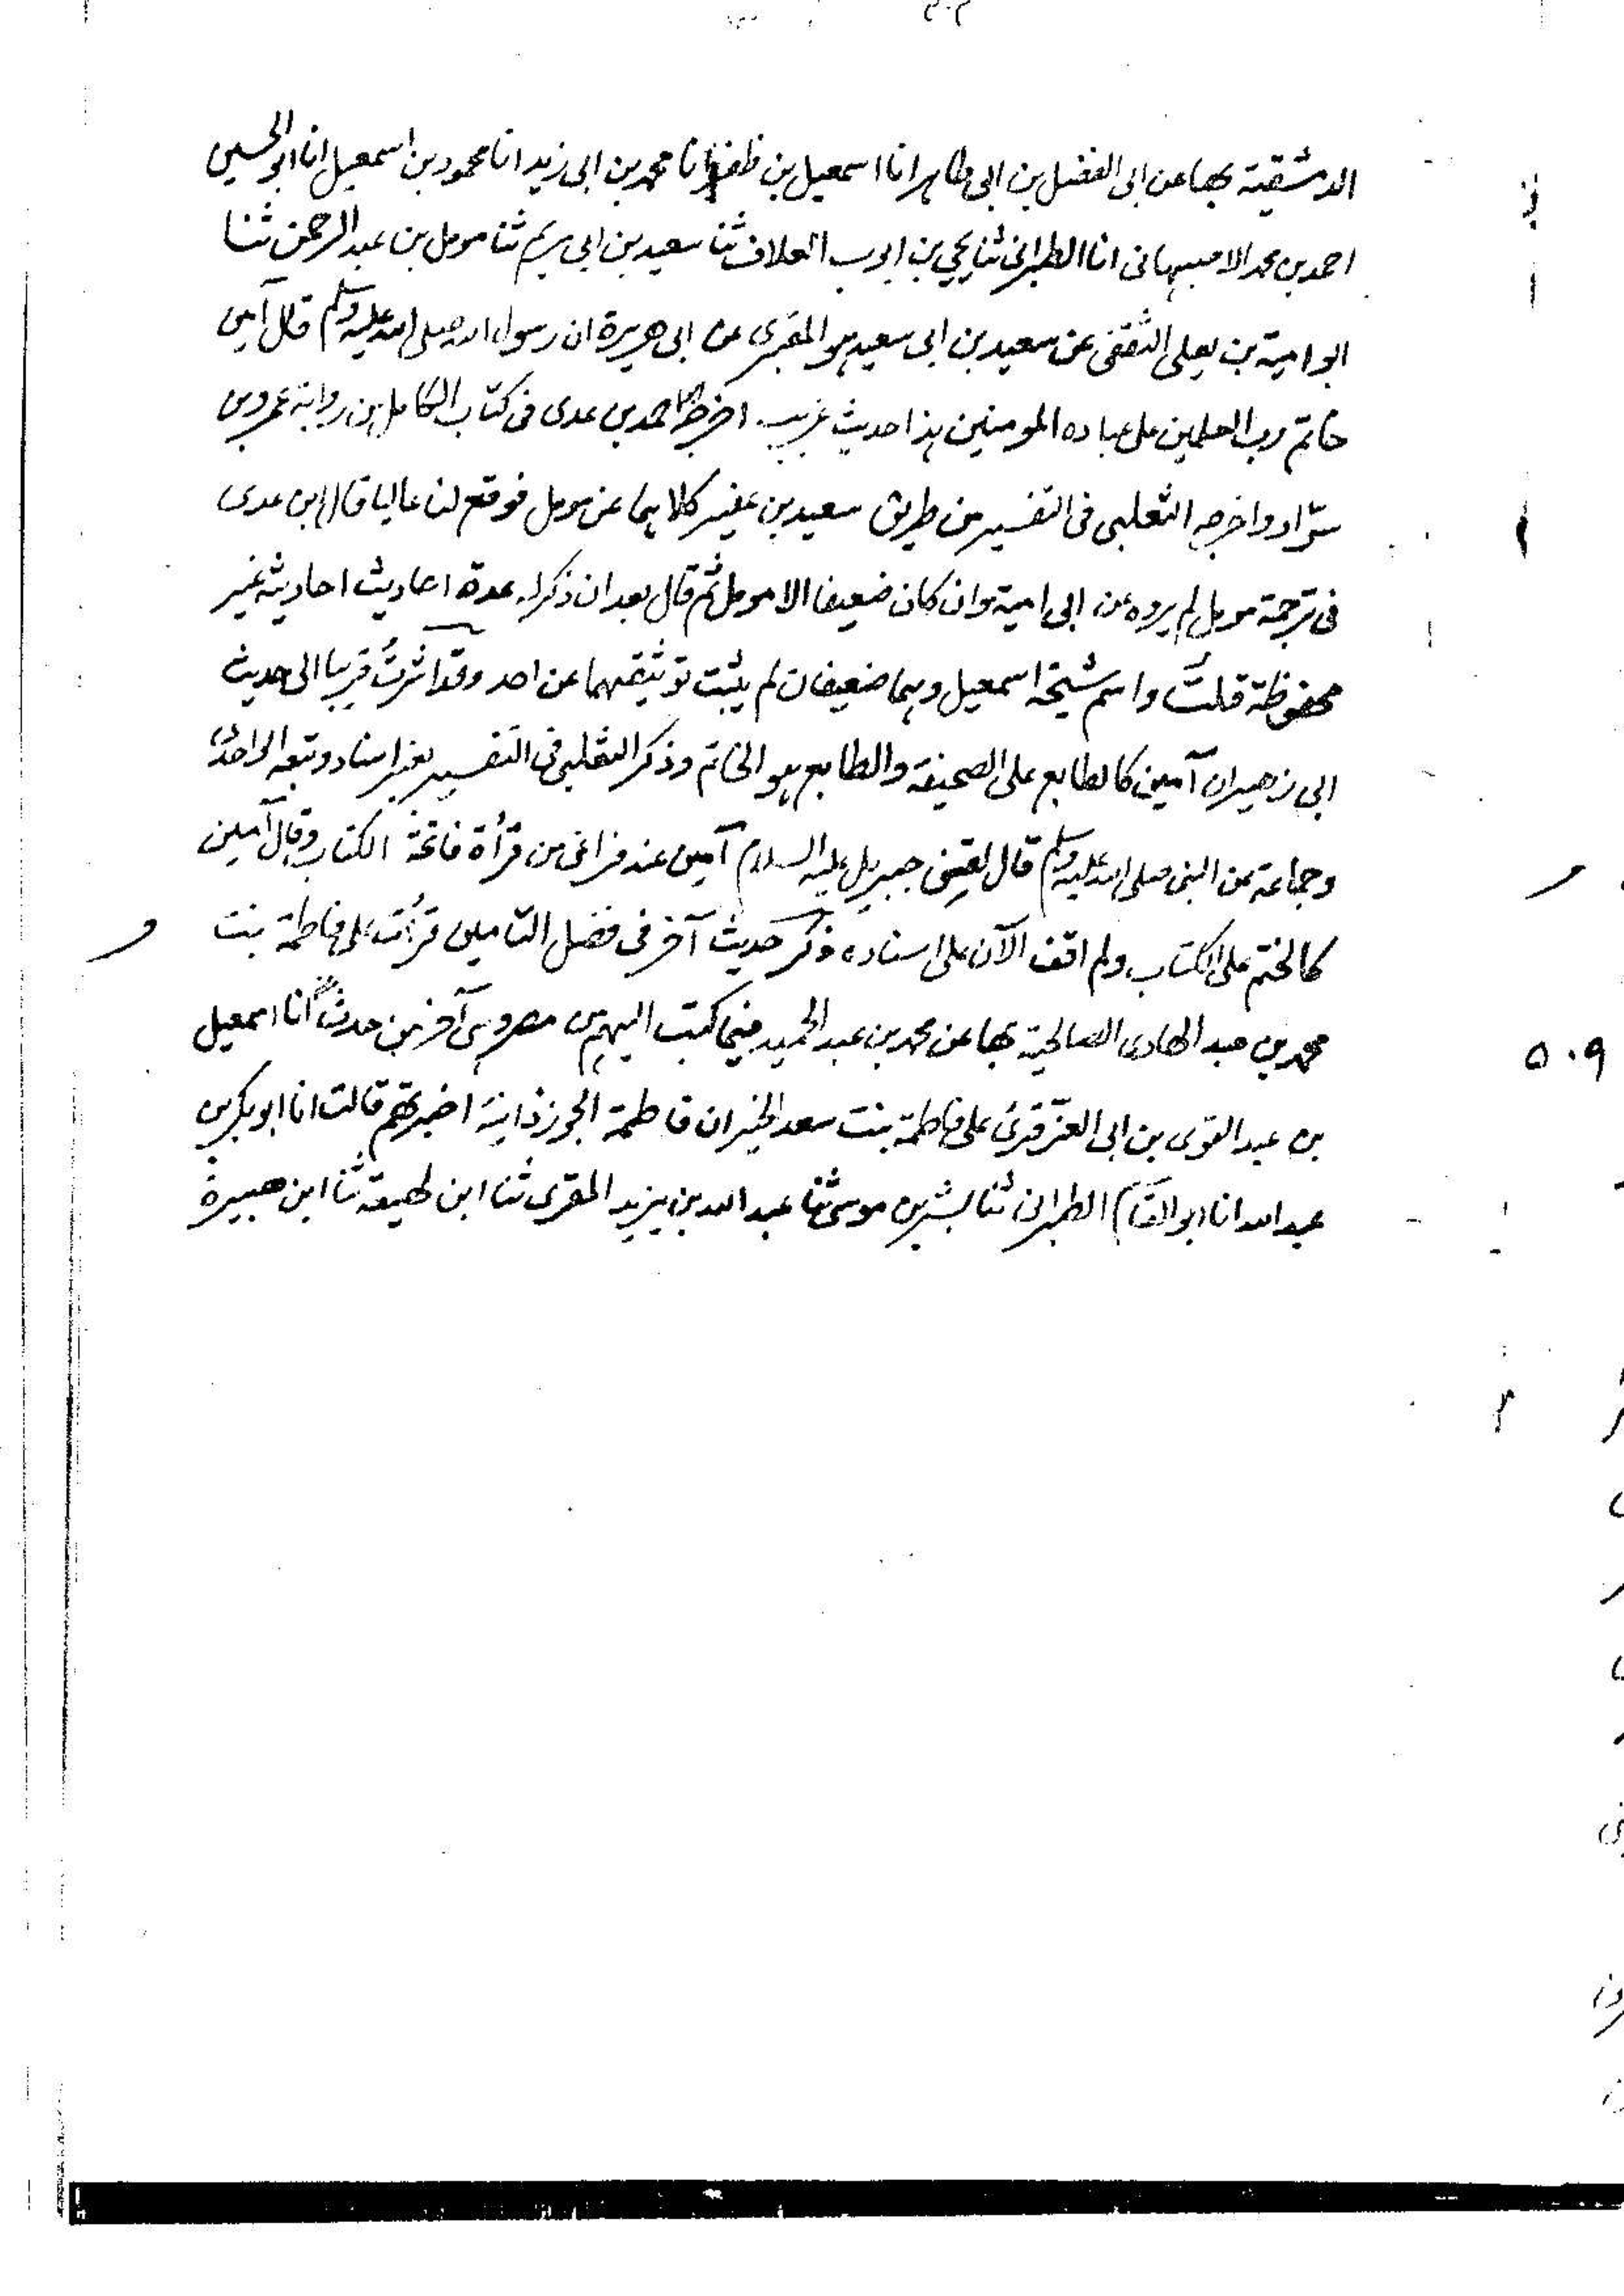 الدمشقية بها عن ابى الفضل بن ابى طاهر انا اسمعيل بن ظفر انا محمد بن ابى زيد انا محمود بن اسمعيل انا ابو الحسين
احمد بن محمد الاصبهانى انا الطبرانى ثنا يحيى بن ايوب العلاف ثنا سعيد بن ابى مريم ثنا مومل بن عبد الرحمن ثنا
ابو امية بن يعلى الثقفى عن سعيد بن ابى سعيد هو المقبرى عن ابى هريرة ان رسول الله صلى الله عليه وسلم قال آمين
خاتم رب العلمين على عباده المومنين هذا حديث غريب اخرجه احمد بن عدى فى كتاب الكامل من رواية عمرو بن
سوّاد واخرجه الثعلبى فى التفسير من طريق سعيد بن عفير كلاهما عن مومل فوقع لنا عاليا قال ابن عدى
فى ترجمة مومل لم يروه عن ابى امية وان كان ضعيفا الا مومل ثم قال بعد ان ذكر له عدة احاديث احاديثه غير
محفوظة قلت واسم شيخه اسمعيل وهما ضعيفان لم يثبت توثيقهما عن احد وقد اشرت قريبا الى حديث
ابى زهير ان آمين كالطابع على الصحيفة والطابع هو الخاتم وذكر الثعلبى فى التفسير بغير اسناد وتبعه الواحدى
وجماعة عن النبى صلى الله عليه وسلم قال لقننى جبريل عليه السلام آمين عند فراغى من قرأة فاتحة الكتاب وقال آمين
كالختم على الكتاب ولم اقف الآن على اسناده ذكر حديث آخر فى فضل التامين قرأت على فاطمة بنت
محمد بن عبد الهادى الصالحية بها عن محمد بن عبد الحميد فيما كتب اليهم من مصر وهى آخر من حدث انا اسمعيل
بن عبد القوى بن ابى العز قرئ على فاطمة بنت سعد الخير ان فاطمة الجوزذانية اخبرتهم قالت انا ابو بكر بن
عبد الله انا ابو القاسم الطبرانى ثنا بشر بن موسى ثنا عبد الله بن يزيد المقرى ثنا ابن لهيعة ثنا ابن هبيرة
٥٠٩